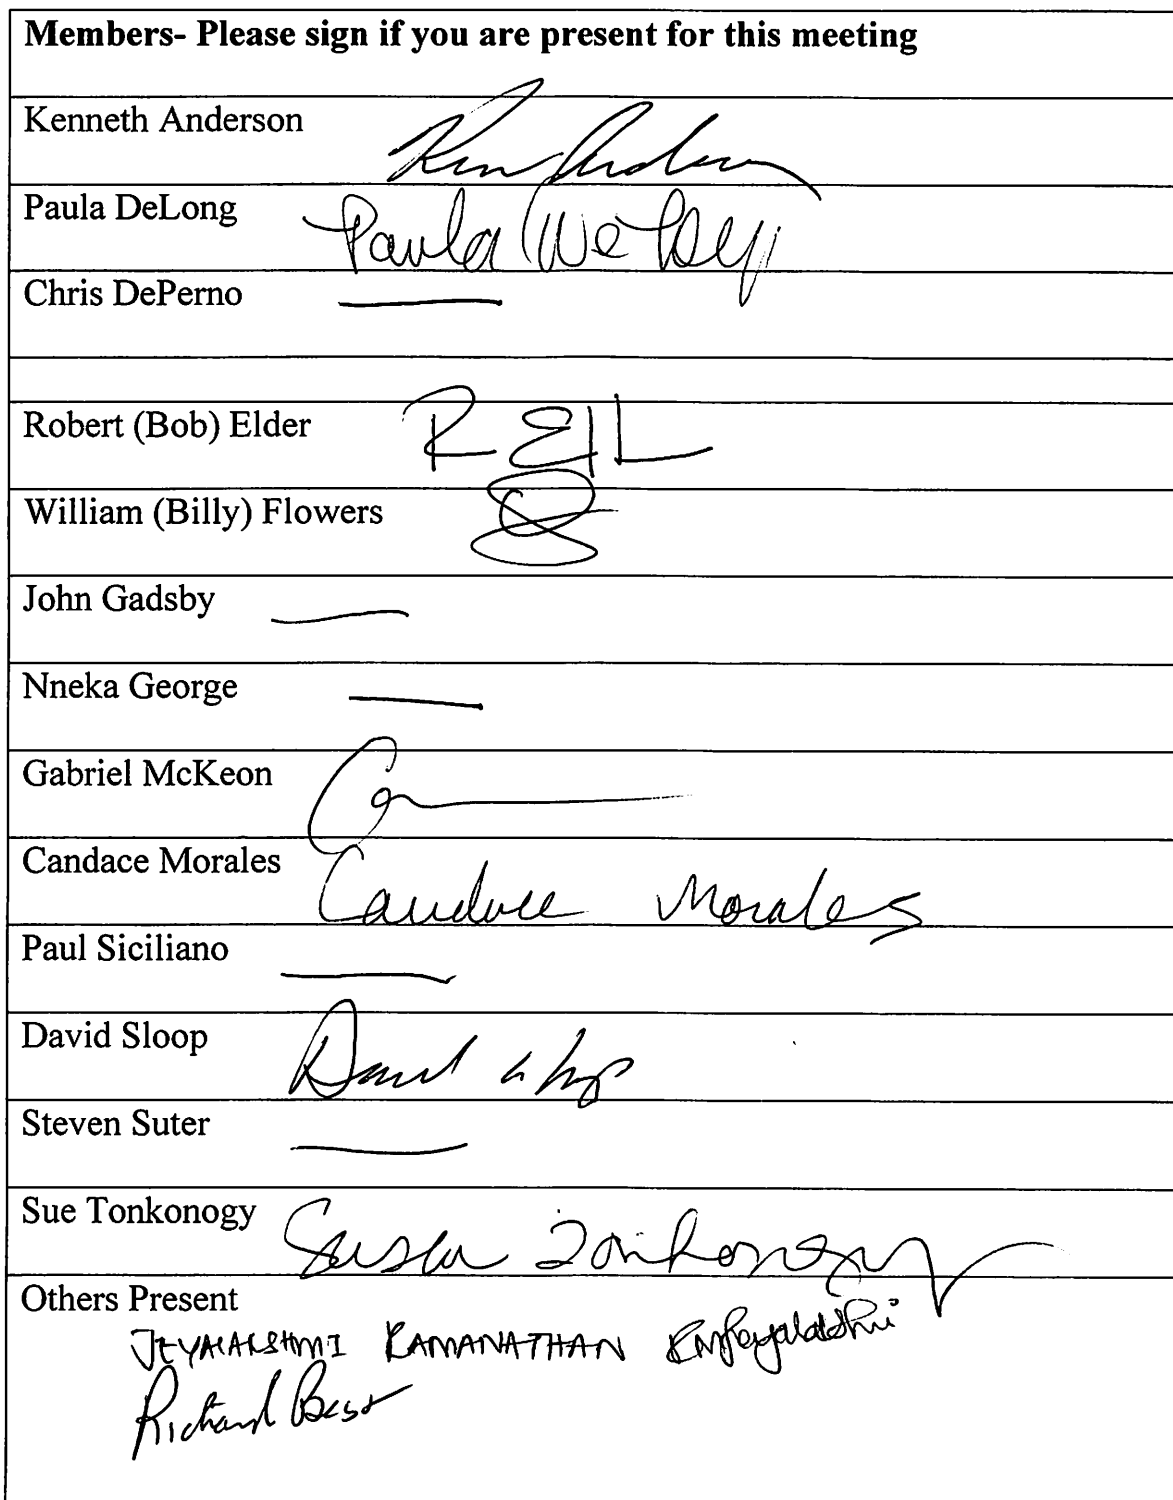 Members- Please sign if you are present for this meeting
Kenneth Anderson Ken Anderson
Paula DeLong Paula
Chris DePerno
Robert (Bob) Elder
William (Billy) Flowers
John Gadsby
Nneka George
Gabriel McKeon
Candace Morales Candace Morales
Paul Siciliano
David Sloop David
Steven Suter
Sue Tonkonogy Susan Tonkonogy
Others Present
JEYALAKSHMI RAMANATHAN
Richard Best